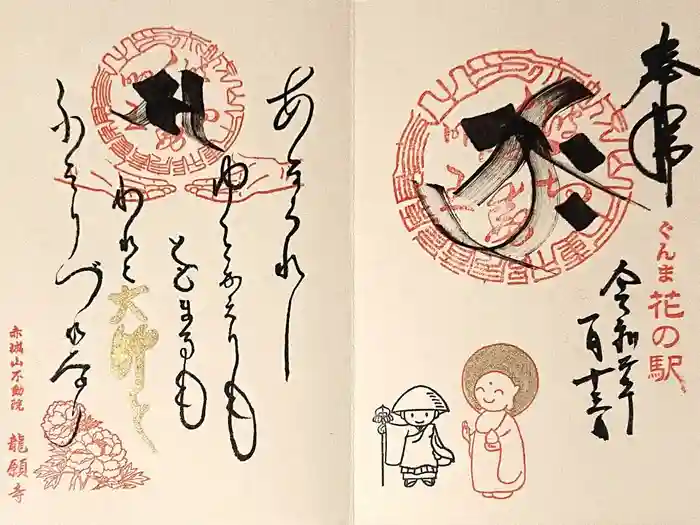 奉拝
ぐんま花の駅
令和
あなうれし
ゆくもかえるも
とどまるも
われは大師と
ふたりづれなり
赤城山不動院
龍願寺